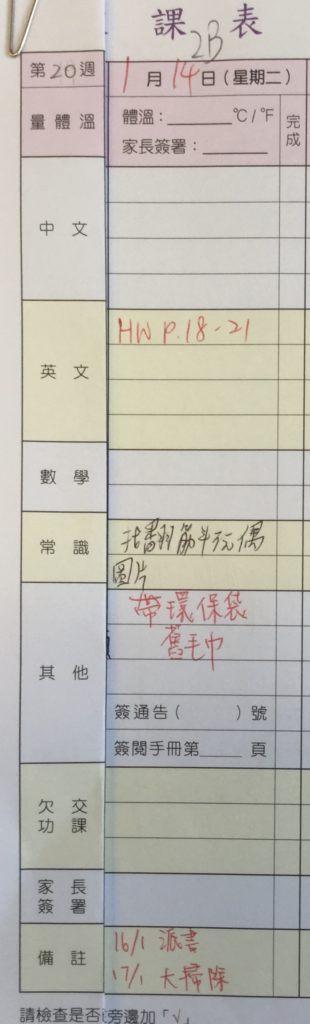 課表
2B
第20週 1月14日(星期二)
量體溫 體溫：______°C/°F 完成
家長簽署：______
中文
英文 HW P.18-21
數學
常識 翻筋斗玩偶
圖片
其他 帶環保袋
舊毛巾
簽通告( )號
簽閱手冊第____頁
欠交功課
家長簽署
備註 16/1 派書
17/1 大掃除
請檢查是否 旁邊加「√」